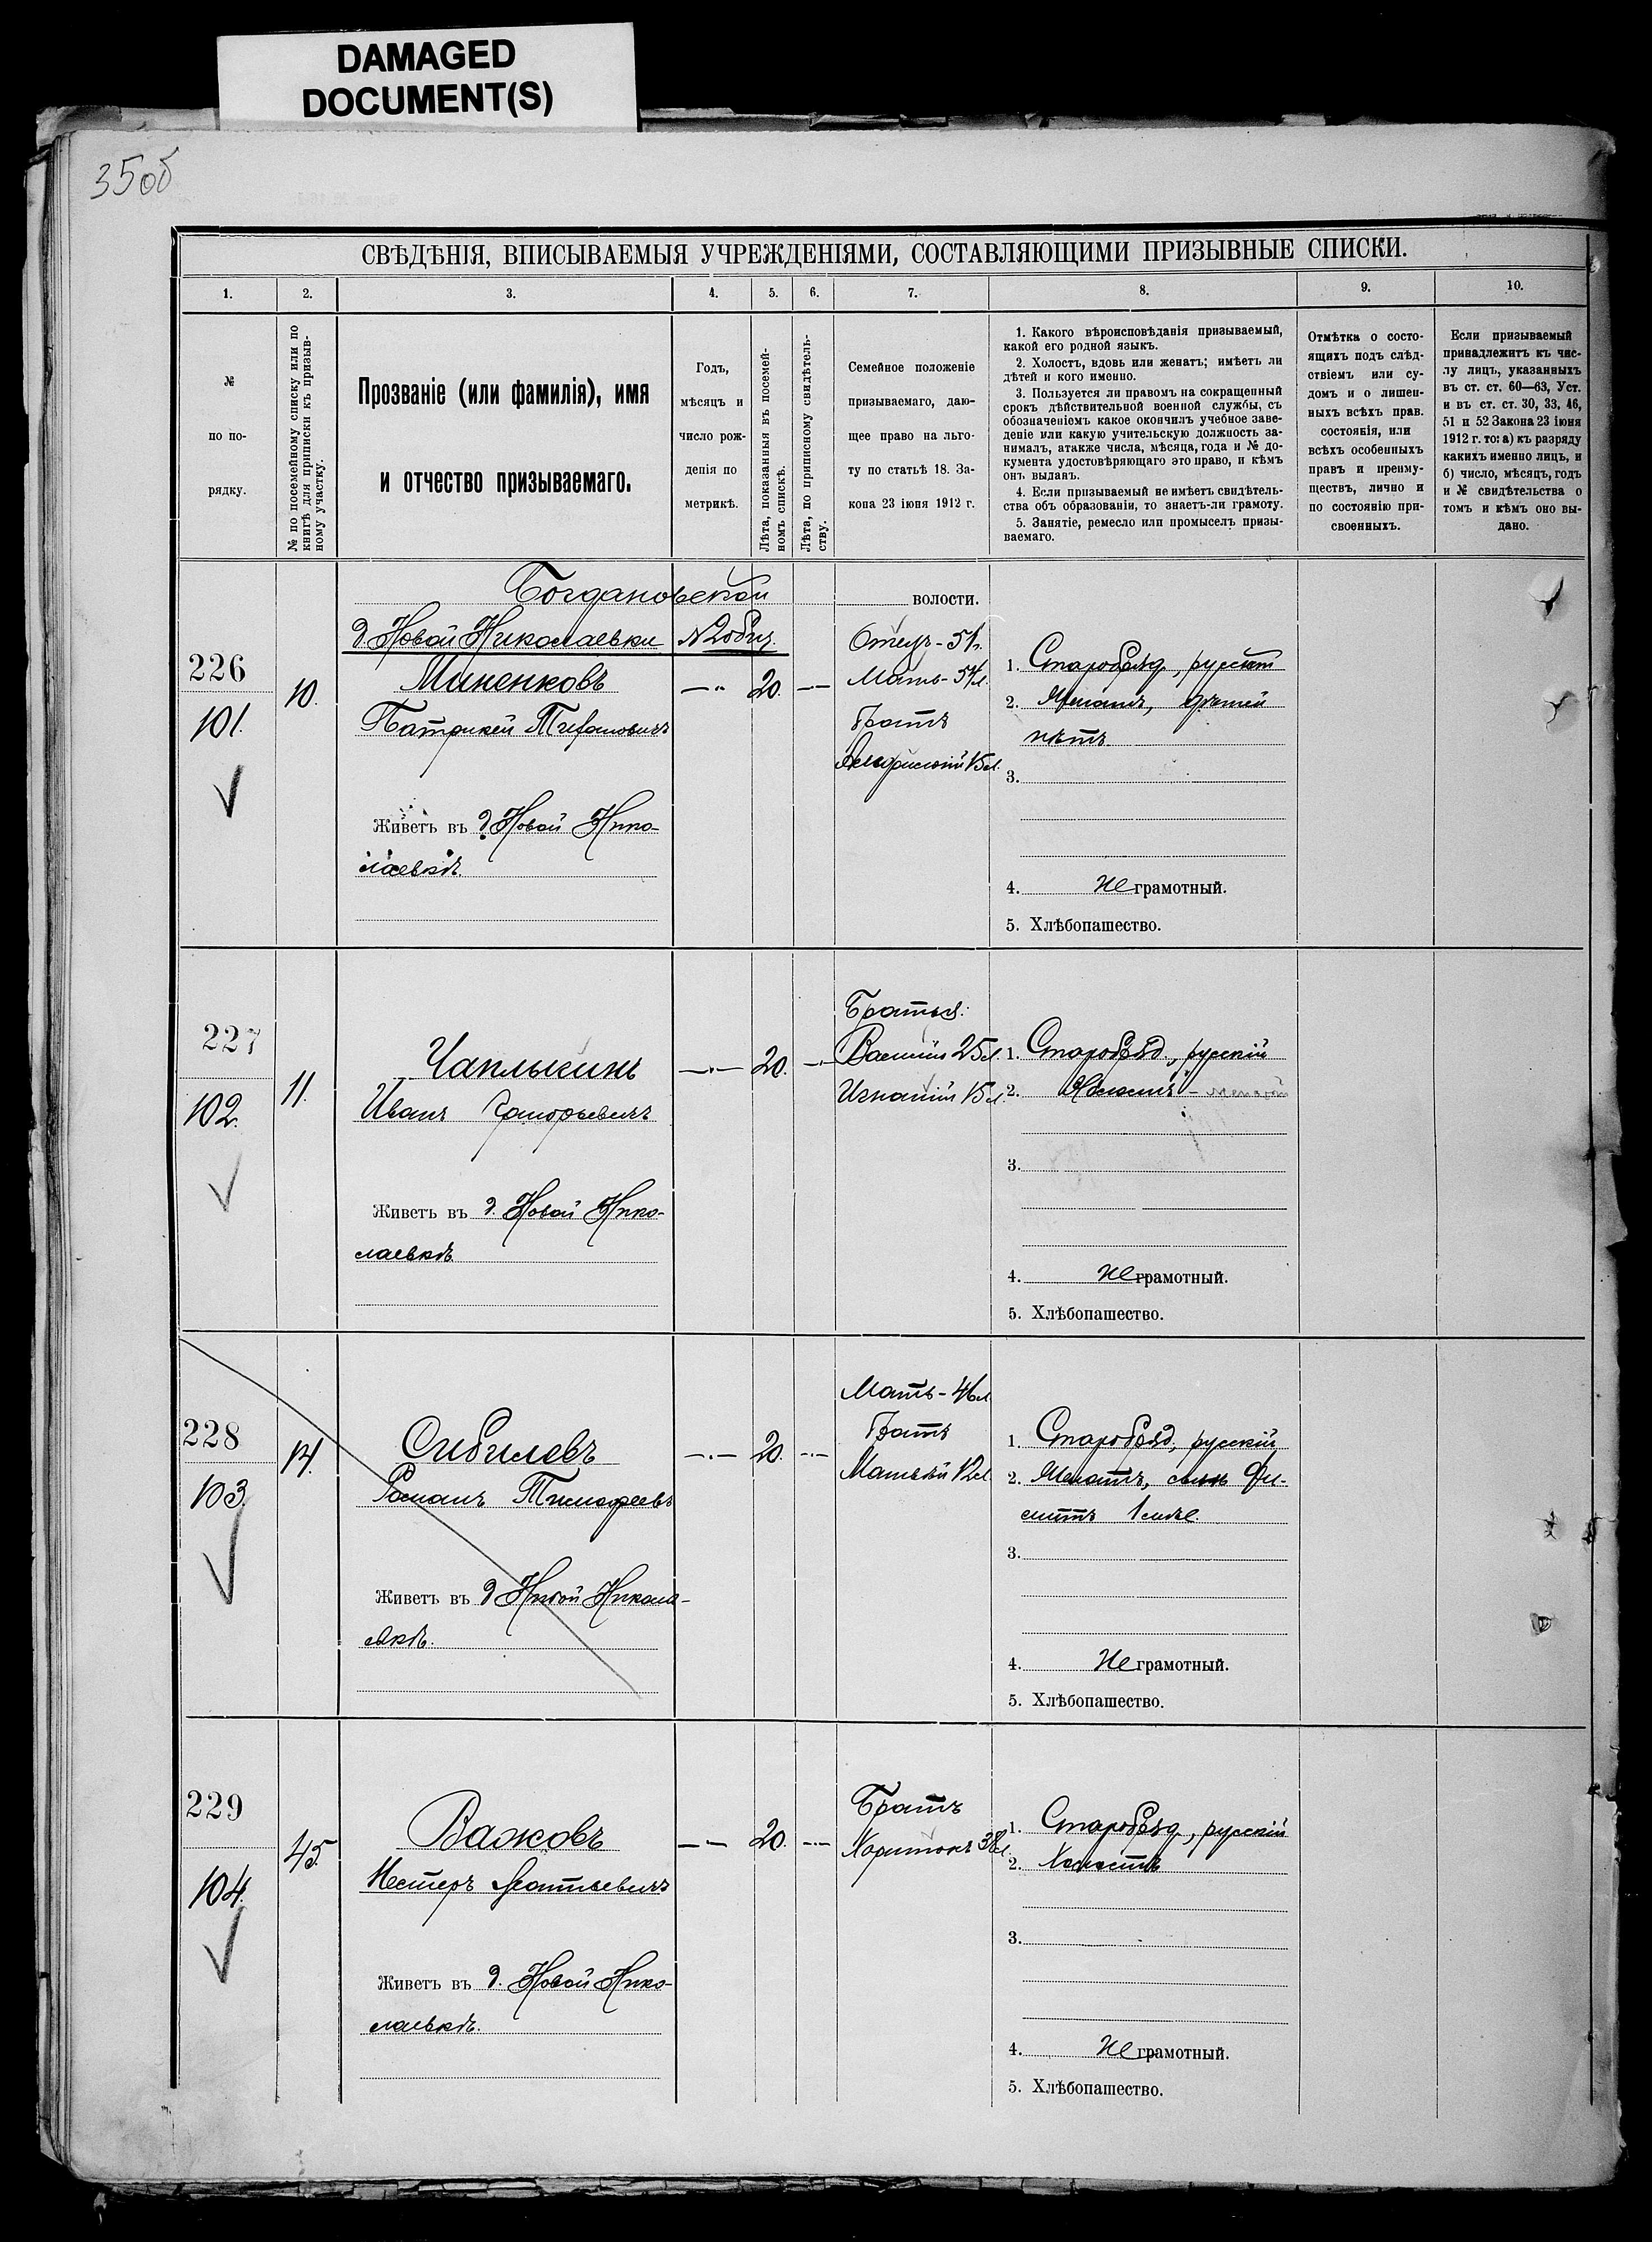 DAMAGED
DOCUMENT(S)
35об
СВѢДѢНІЯ, ВПИСЫВАЕМЫЯ УЧРЕЖДЕНІЯМИ, СОСТАВЛЯЮЩИМИ ПРИЗЫВНЫЕ СПИСКИ.
1. 2. 3. 4. 5. 6. 7. 8. 9. 10.
№
по по-
рядку.
№ по посемейному списку или по
книгѣ для приписки къ призыв-
ному участку.
Прозваніе (или фамилія), имя
и отчество призываемаго.
Годъ,
мѣсяцъ и
число рож-
денія по
метрикѣ.
Лѣта, показанныя въ посемей-
номъ спискѣ.
Лѣта, по приписному свидѣтель-
ству.
Семейное положеніе
призываемаго, даю-
щее право на льго-
ту по статьѣ 18. За-
кона 23 іюня 1912 г.
1. Какого вѣроисповѣданія призываемый,
какой его родной языкъ.
2. Холостъ, вдовъ или женатъ; имѣетъ ли
дѣтей и кого именно.
3. Пользуется ли правомъ на сокращенный
срокъ дѣйствительной военной службы, съ
обозначеніемъ какое окончилъ учебное заве-
деніе или какую учительскую должность за-
нималъ, атакже числа, мѣсяца, года и № до-
кумента удостовѣряющаго это право, и кѣмъ
онъ выданъ.
4. Если призываемый не имѣетъ свидѣтель-
ства объ образованіи, то знаетъ-ли грамоту.
5. Занятіе, ремесло или промыселъ призы-
ваемаго.
Отмѣтка о состо-
ящихъ подъ слѣд-
ствіемъ или су-
домъ и о лишен-
ныхъ всѣхъ прав.
состоянія, или
всѣхъ особенныхъ
правъ и преиму-
ществъ, лично и
по состоянію при-
своенныхъ.
Если призываемый
принадлежитъ къ чис-
лу лицъ, указанныхъ
въ ст. ст. 60—63, Уст.
и въ ст. ст. 30, 33, 46,
51 и 52 Закона 23 іюня
1912 г. то: а) къ разряду
какихъ именно лицъ, и
б) число, мѣсяцъ, годъ
и № свидѣтельства о
томъ и кѣмъ оно вы-
дано.
Богдановской волости.
д. Новой Николаевки №2 общ.
226
101.
10.
Миненковъ
Патрикей Тифановичъ
Живетъ въ д. Новой Нико-
лаевкѣ.
20.
Отецъ - 51 л.
Мать - 51 л.
Братъ
15 л.
1. Старобряд., русскій
2. Женатъ, дѣтей
нѣтъ
3.
4. Не грамотный.
5. Хлѣбопашество.
227
102.
11.
Чаплыгинъ
Иванъ Григорьевичъ
Живетъ въ д. Новой Нико-
лаевкѣ
20.
Братья:
Василій 25 л.
Игнатій 15 л.
1. Старобряд., русскій
2. Холостъ -
3.
4. Не грамотный.
5. Хлѣбопашество.
228
103.
14.
Сибилевъ
Романъ Тимофеевъ
Живетъ въ д Новой Никола-
евкѣ.
20.
Мать - 46 л
Братъ
Матвѣй 12 л
1. Старобряд., русскій
2. Женатъ, сынъ
1 мѣс.
3.
4. Не грамотный.
5. Хлѣбопашество.
229
104.
45.
Важовъ
Нестеръ Леонтьевичъ
Живетъ въ д. Новой Нико-
лаевкѣ.
20.
Братъ
Харитонъ 38 л.
1. Старобряд., русскій
2. Холостъ
3.
4. Не грамотный.
5. Хлѣбопашество.